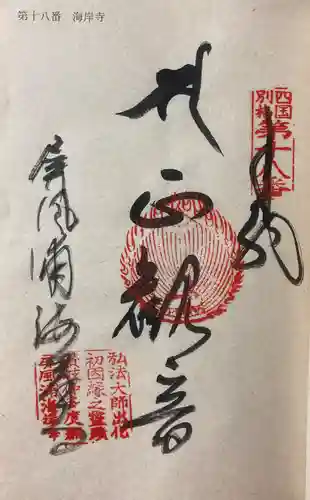 第十八番　海岸寺
四国
別格
第十八番
奉拝
正観音
屏風浦海岸寺
弘法大師出化
初因縁之霊蹟